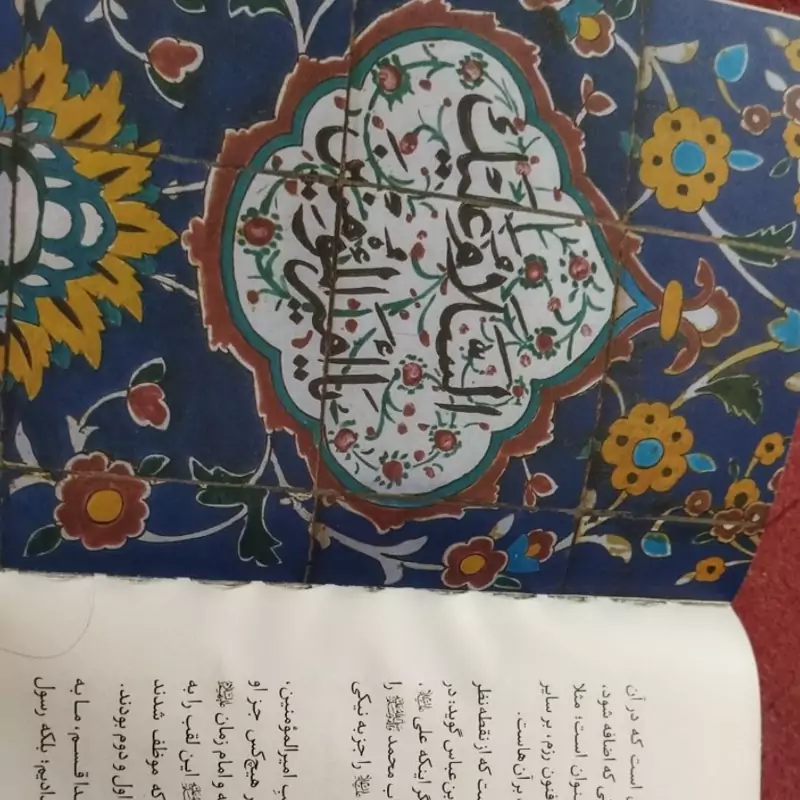 السَّلامُ عَلَیک
یا اَمیرَالمُؤمِنین
است که در آن
که اضافه شود،
عنوان است؛ مثلا
فنون رزم، بر سایر
بر آن‌هاست.
که از نقطه نظر
بن عباس گوید: در
اینکه علی
محمد ﷺ را
را جز به نیکی
امیرالمؤمنین،
هیچ‌کس جز او
و امام زمان
این لقب را به
که موظف شدند
اول و دوم بودند.
قسم، ما به
دادیم؛ بلکه رسول